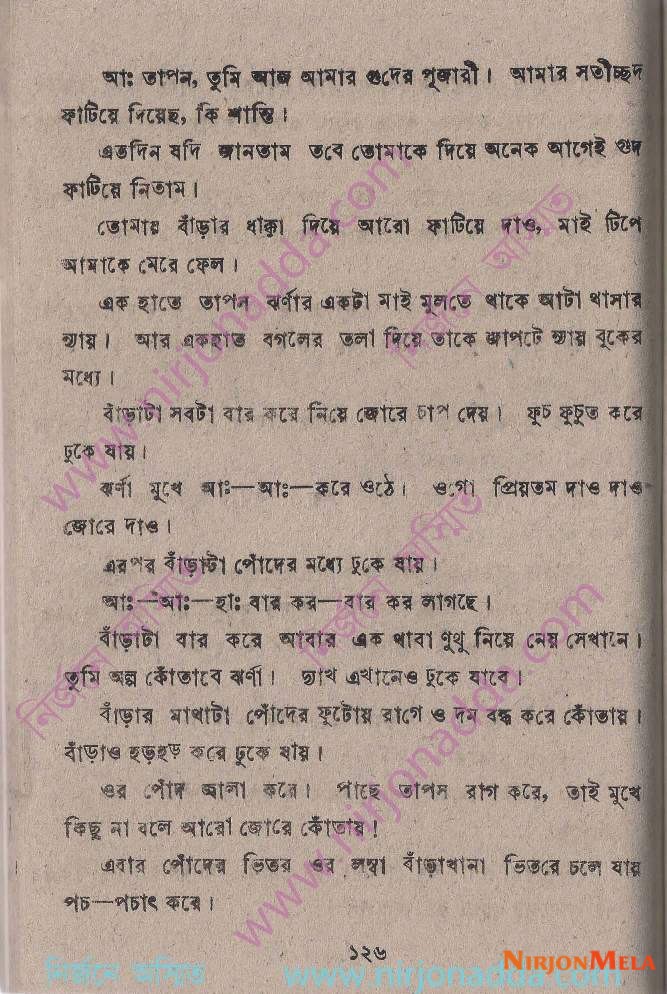 আঃ তাপস, তুমি আজ আমার গুদের পূজারী। আমার সতীচ্ছদ
ফাটিয়ে দিয়েছ, কি শান্তি।
এতদিন যদি জানতাম তবে তোমাকে দিয়ে অনেক আগেই গুদ
ফাটিয়ে নিতাম।
তোমায় বাঁড়ার ধাক্কা দিয়ে আরো ফাটিয়ে দাও, মাই টিপে
আমাকে মেরে ফেল।
এক হাতে তাপস ঝর্ণার একটা মাই মুলতে থাকে আটা থাসার
ন্যায়। আর একহাত বগলের তলা দিয়ে তাকে জাপটে ন্যায় বুকের
মধ্যে।
বাঁড়াটা সবটা বার করে নিয়ে জোরে চাপ দেয়। ফুচ ফুচুত করে
ঢুকে যায়।
ঝর্ণা মুখে আঃ—আঃ—করে ওঠে। ওগো প্রিয়তম দাও দাও
জোরে দাও।
এরপর বাঁড়াটা পোঁদের মধ্যে ঢুকে যায়।
আঃ—আঃ—হাঃ বার কর—বার কর লাগছে।
বাঁড়াটা বার করে আবার এক থাবা থুথু নিয়ে নেয় সেখানে।
তুমি অল্প কোঁতাবে ঝর্ণা। দ্যাখ এখানেও ঢুকে যাবে।
বাঁড়ার মাথাটা পোঁদের ফুটোয় রাগে ও দম বন্ধ করে কোঁতায়।
বাঁড়াও হড়হড় করে ঢুকে যায়।
ওর পোঁদ জালা করে। পাছে তাপস রাগ করে, তাই মুখে
কিছু না বলে আরো জোরে কোঁতায়!
এবার পোঁদের ভিতর ওর লম্বা বাঁড়াখানা ভিতরে চলে যায়
পচ—পচাৎ করে।
১২৬
NIRJONMELA
নির্জনে অস্মিত www.nirjonadda.com
www.nirjonadda.com
নির্জনে অস্মিত
নির্জনে অস্মিত
নির্জনে অস্মিত
www.nirjonadda.com